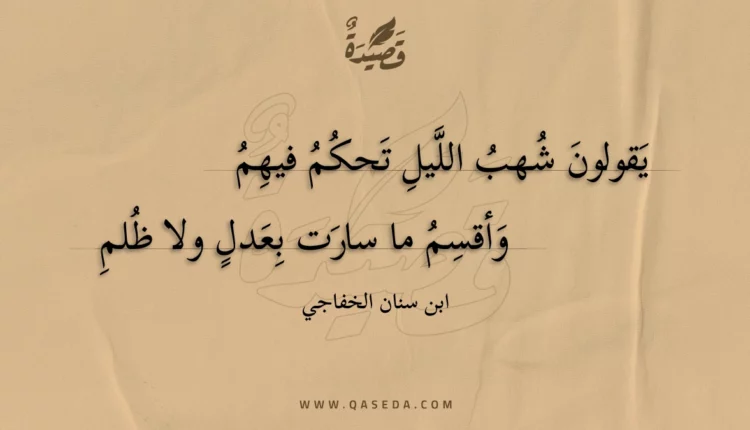 قَصِيدَةٌ
يَقولونَ شُهبُ اللَّيلِ تَحكُمُ فيهِمُ
وَأقسِمُ ما سارَت بِعَدلٍ ولا ظُلمِ
ابن سنان الخفاجي
WWW.QASEDA.COM